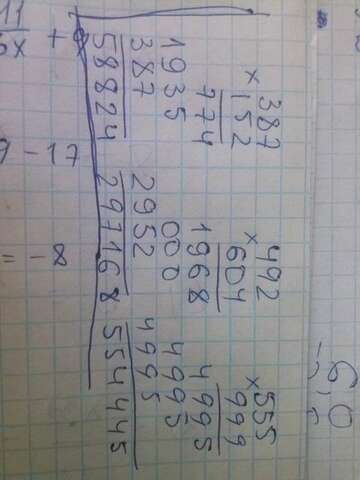 11
5x +
9 - 17
= -8
× 387
152
774
1935
387
58824
× 492
604
1968
000
2952
297168
× 555
999
4995
4995
4995
554445